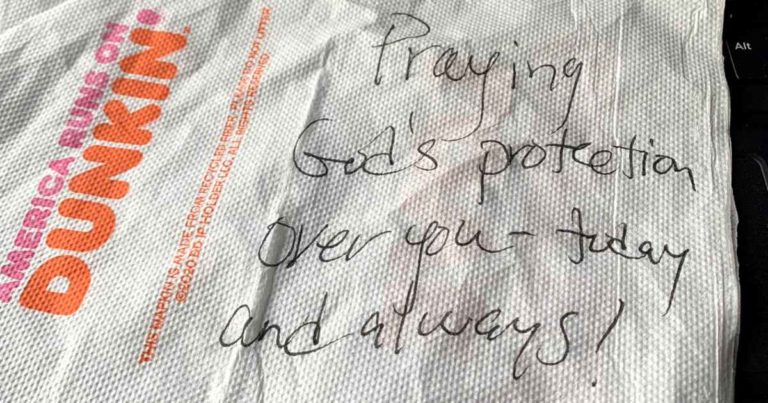 AMERICA RUNS ON
DUNKIN'.
THIS NAPKIN IS MADE FROM RECYCLED FIBER. PLEASE DO NOT LITTER
©2020 DD IP HOLDER LLC. ALL RIGHTS RESERVED
Praying
God's protection
over you - today
and always!
Alt